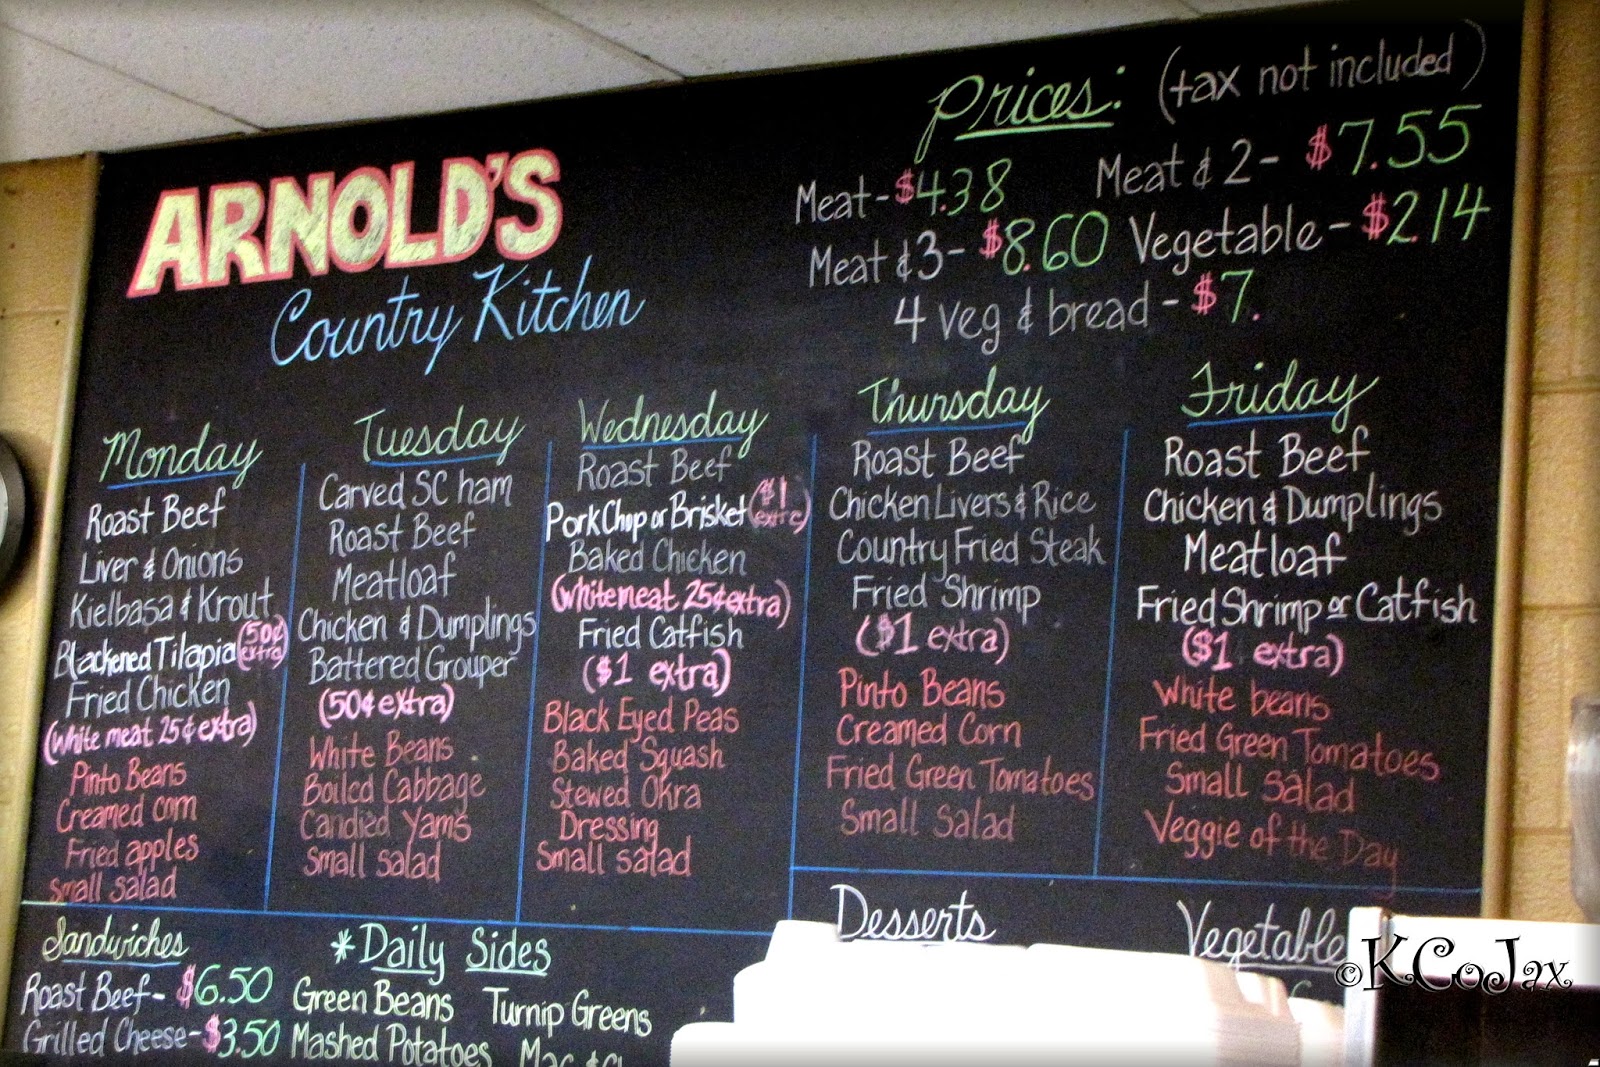 Prices: (tax not included)
ARNOLD'S
Country Kitchen
Meat - $4.38 Meat & 2 - $7.55
Meat & 3 - $8.60 Vegetable - $2.14
4 veg & bread - $7.
Monday
Roast Beef
Liver & Onions
Kielbasa & Krout
Blackened Tilapia (50¢ extra)
Fried Chicken
(white meat 25¢ extra)
Pinto Beans
Creamed corn
Fried apples
small salad
Tuesday
Carved SC ham
Roast Beef
Meatloaf
Chicken & Dumplings
Battered Grouper
(50¢ extra)
White Beans
Boiled Cabbage
Candied Yams
Small salad
Wednesday
Roast Beef
Pork Chop or Brisket ($1 extra)
Baked Chicken
(white meat 25¢ extra)
Fried Catfish
($1 extra)
Black Eyed Peas
Baked Squash
Stewed Okra
Dressing
Small salad
Thursday
Roast Beef
Chicken Livers & Rice
Country Fried Steak
Fried Shrimp
($1 extra)
Pinto Beans
Creamed Corn
Fried Green Tomatoes
Small Salad
Friday
Roast Beef
Chicken & Dumplings
Meatloaf
Fried Shrimp or Catfish
($1 extra)
White beans
Fried Green Tomatoes
Small Salad
Veggie of the Day
Sandwiches
Roast Beef - $6.50
Grilled Cheese - $3.50
*Daily Sides
Green Beans Turnip Greens
Mashed Potatoes Mac &
Desserts
Vegetable
©KCoJax